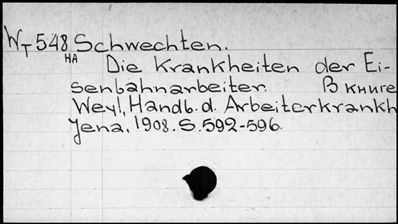 WT 548 Schwechten.
HA
Die Krankheiten der Ei-
senbahnarbeiter. В книге
Weyl, Handb. d. Arbeiterkrankh
Jena, 1908. S. 592-596.